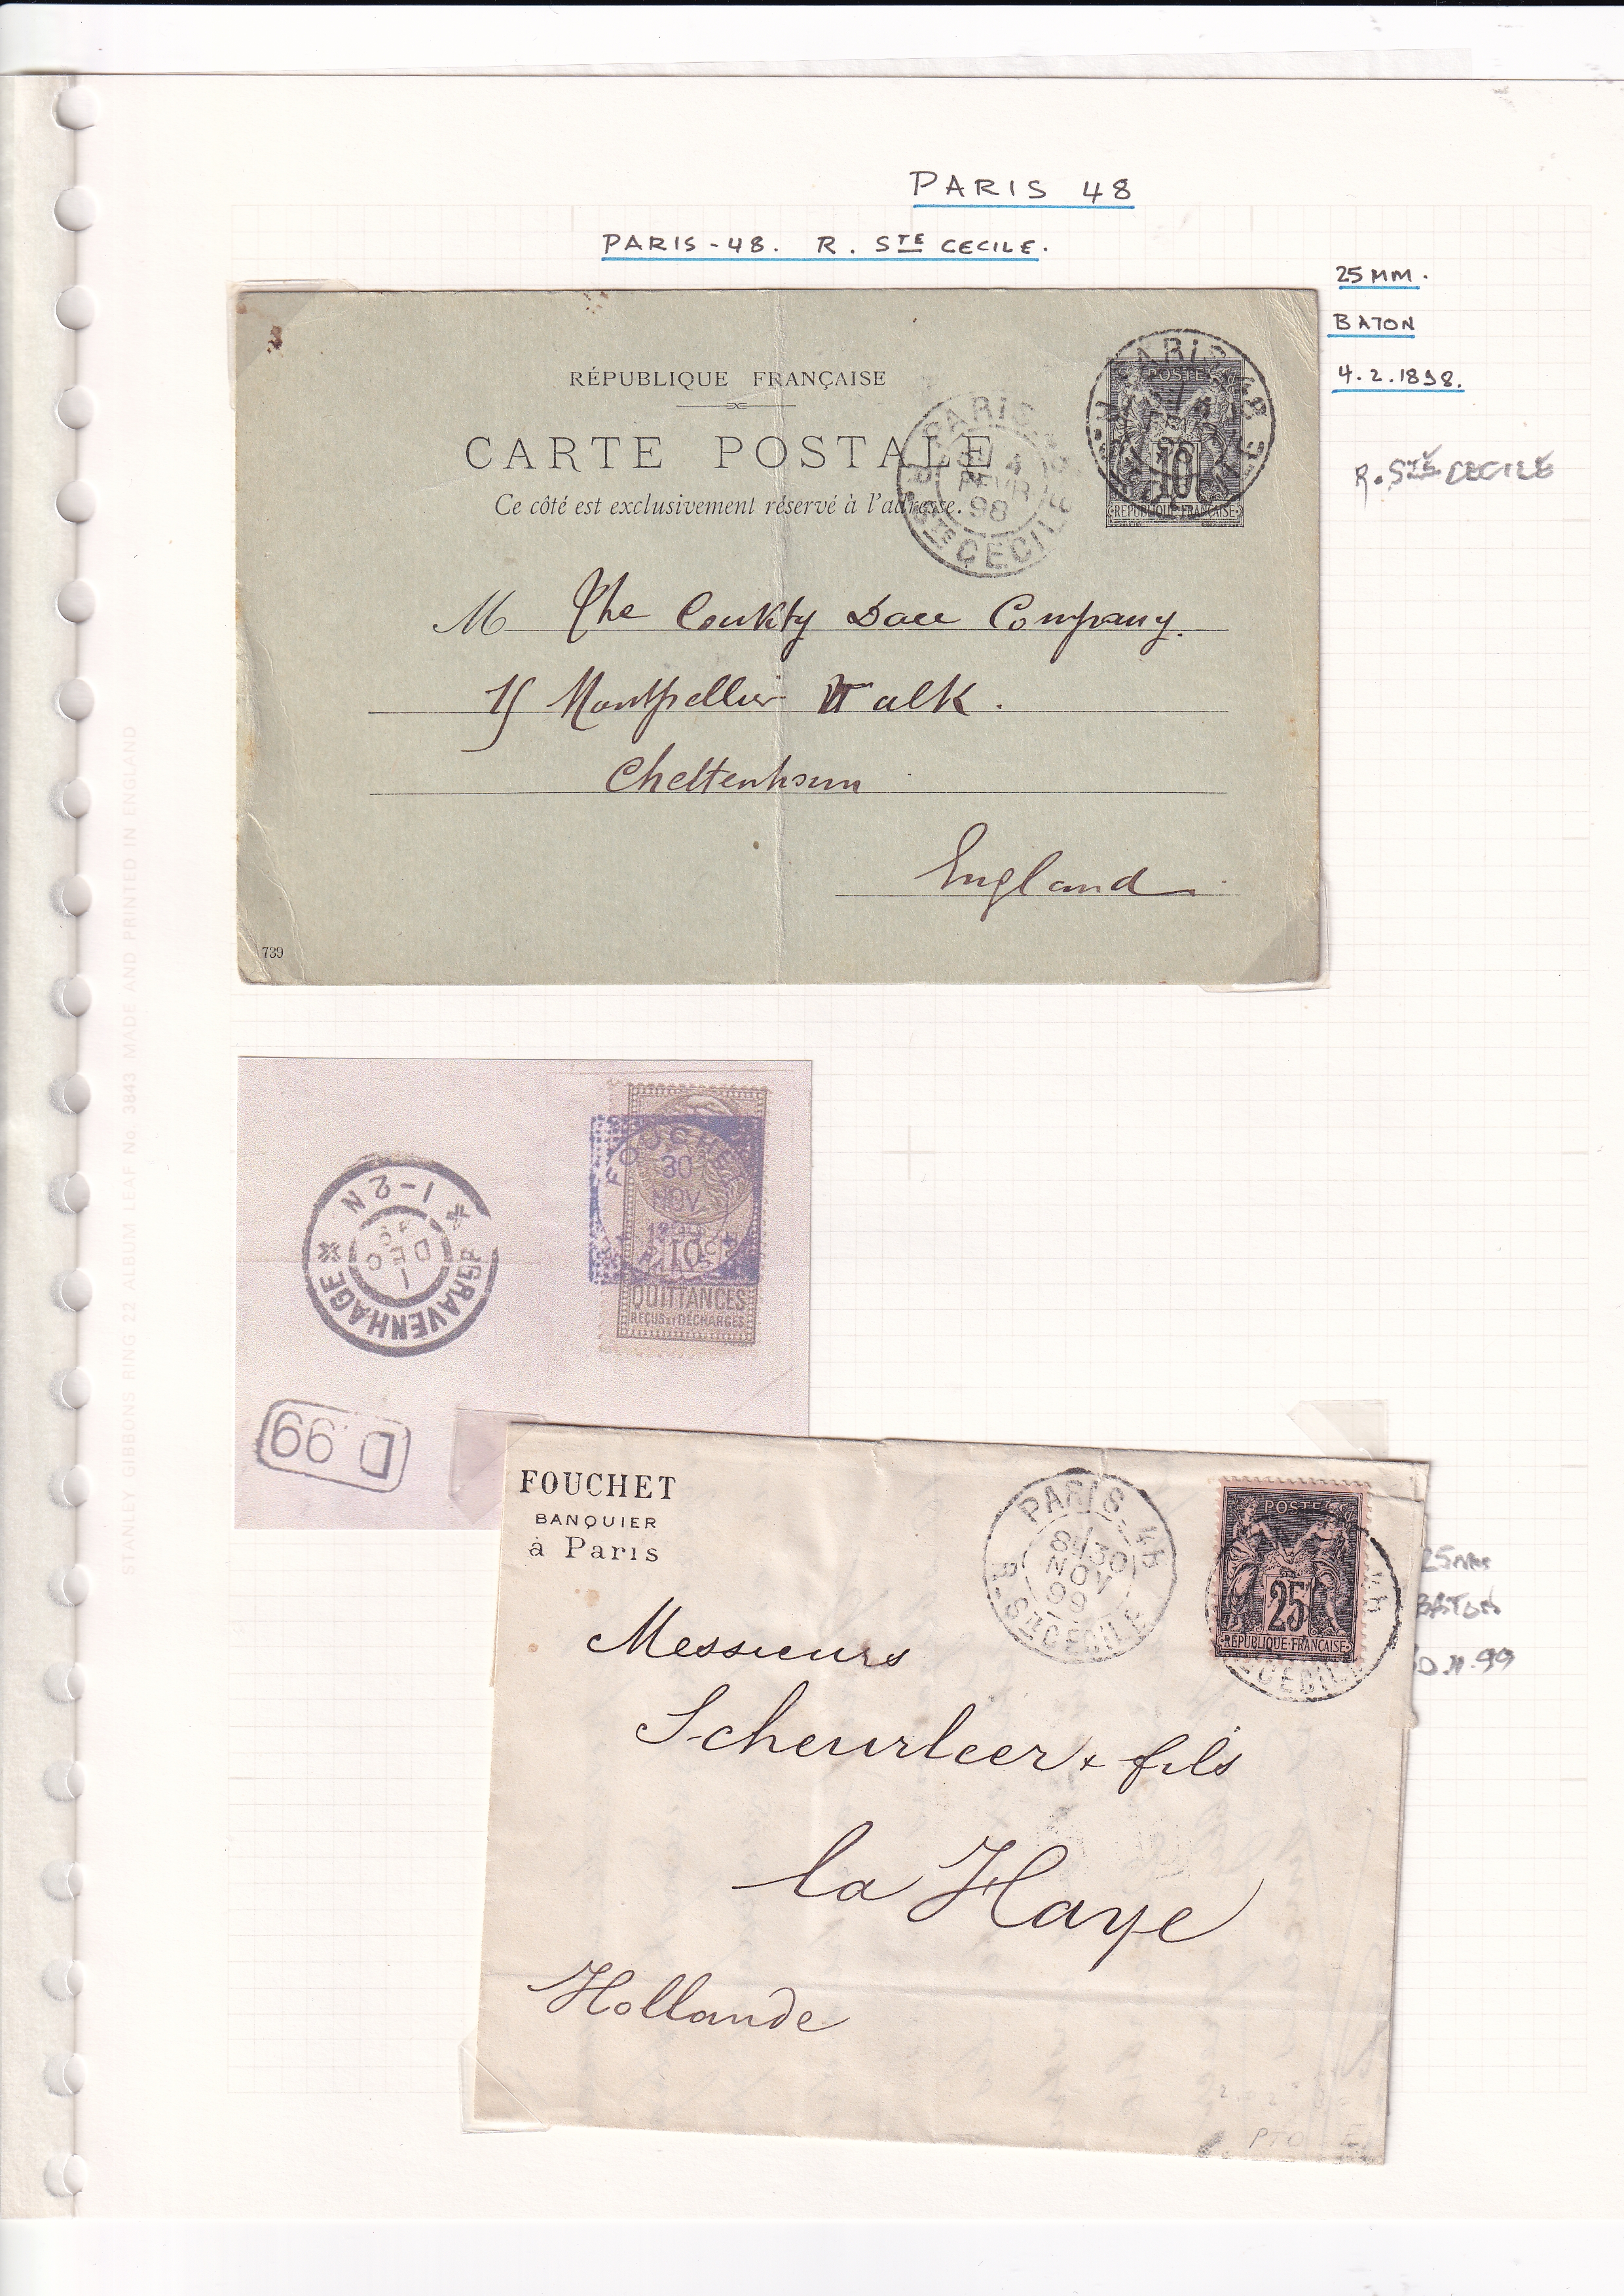 PARIS 48
PARIS-48. R. STE CECILE.
25 MM.
BATON
4.2.1898.
R. STE CECILE
RÉPUBLIQUE FRANÇAISE
CARTE POSTALE
Ce côté est exclusivement réservé à l'adresse.
PARIS
4
FEVR
98
STE CECILE
POSTES
10
REPUBLIQUE FRANÇAISE
M The County Company.
15 Montpellier Walk.
Cheltenham
England
739
STANLEY GIBBONS RING 22 ALBUM LEAF No 3843 MADE AND PRINTED IN ENGLAND
'SGRAVENHAGE
1-2 N
1
DEC
FOUCHET
30
NOV
10c
PARIS
QUITTANCES
REÇUS ET DÉCHARGES
D.99
FOUCHET
BANQUIER
à Paris
PARIS
30
NOV
99
R. STE CECILE
POSTES
25
REPUBLIQUE FRANÇAISE
25mm
BATON
Messieurs
Scheurleer & fils
la Haye
Hollande
PTO